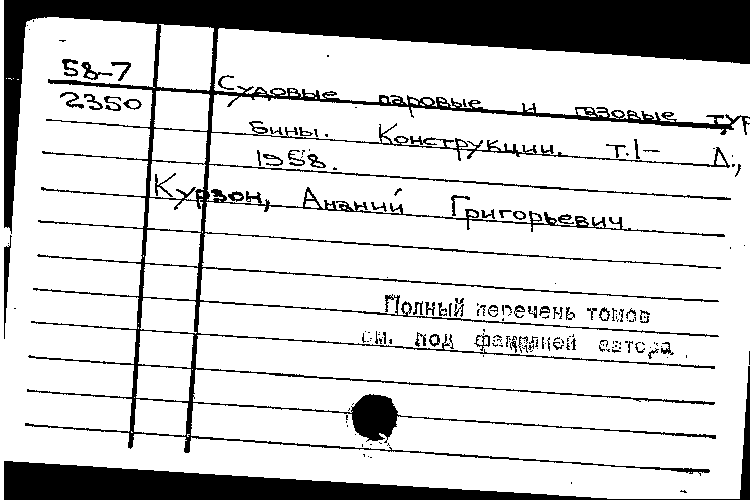 58-7
2350
Судовые паровые и газовые тур
бины. Конструкции. т.1- Л.,
1958.
Курзон, Ананий Григорьевич.
Полный перечень томов
см. под фамилией автора.